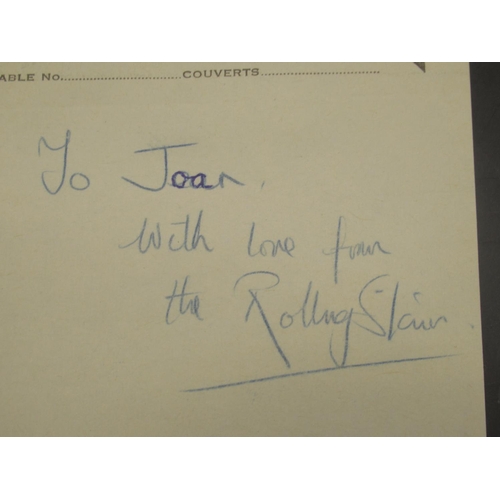 ABLE No. COUVERTS
To Joan.
With love from
the Rolling Stones.